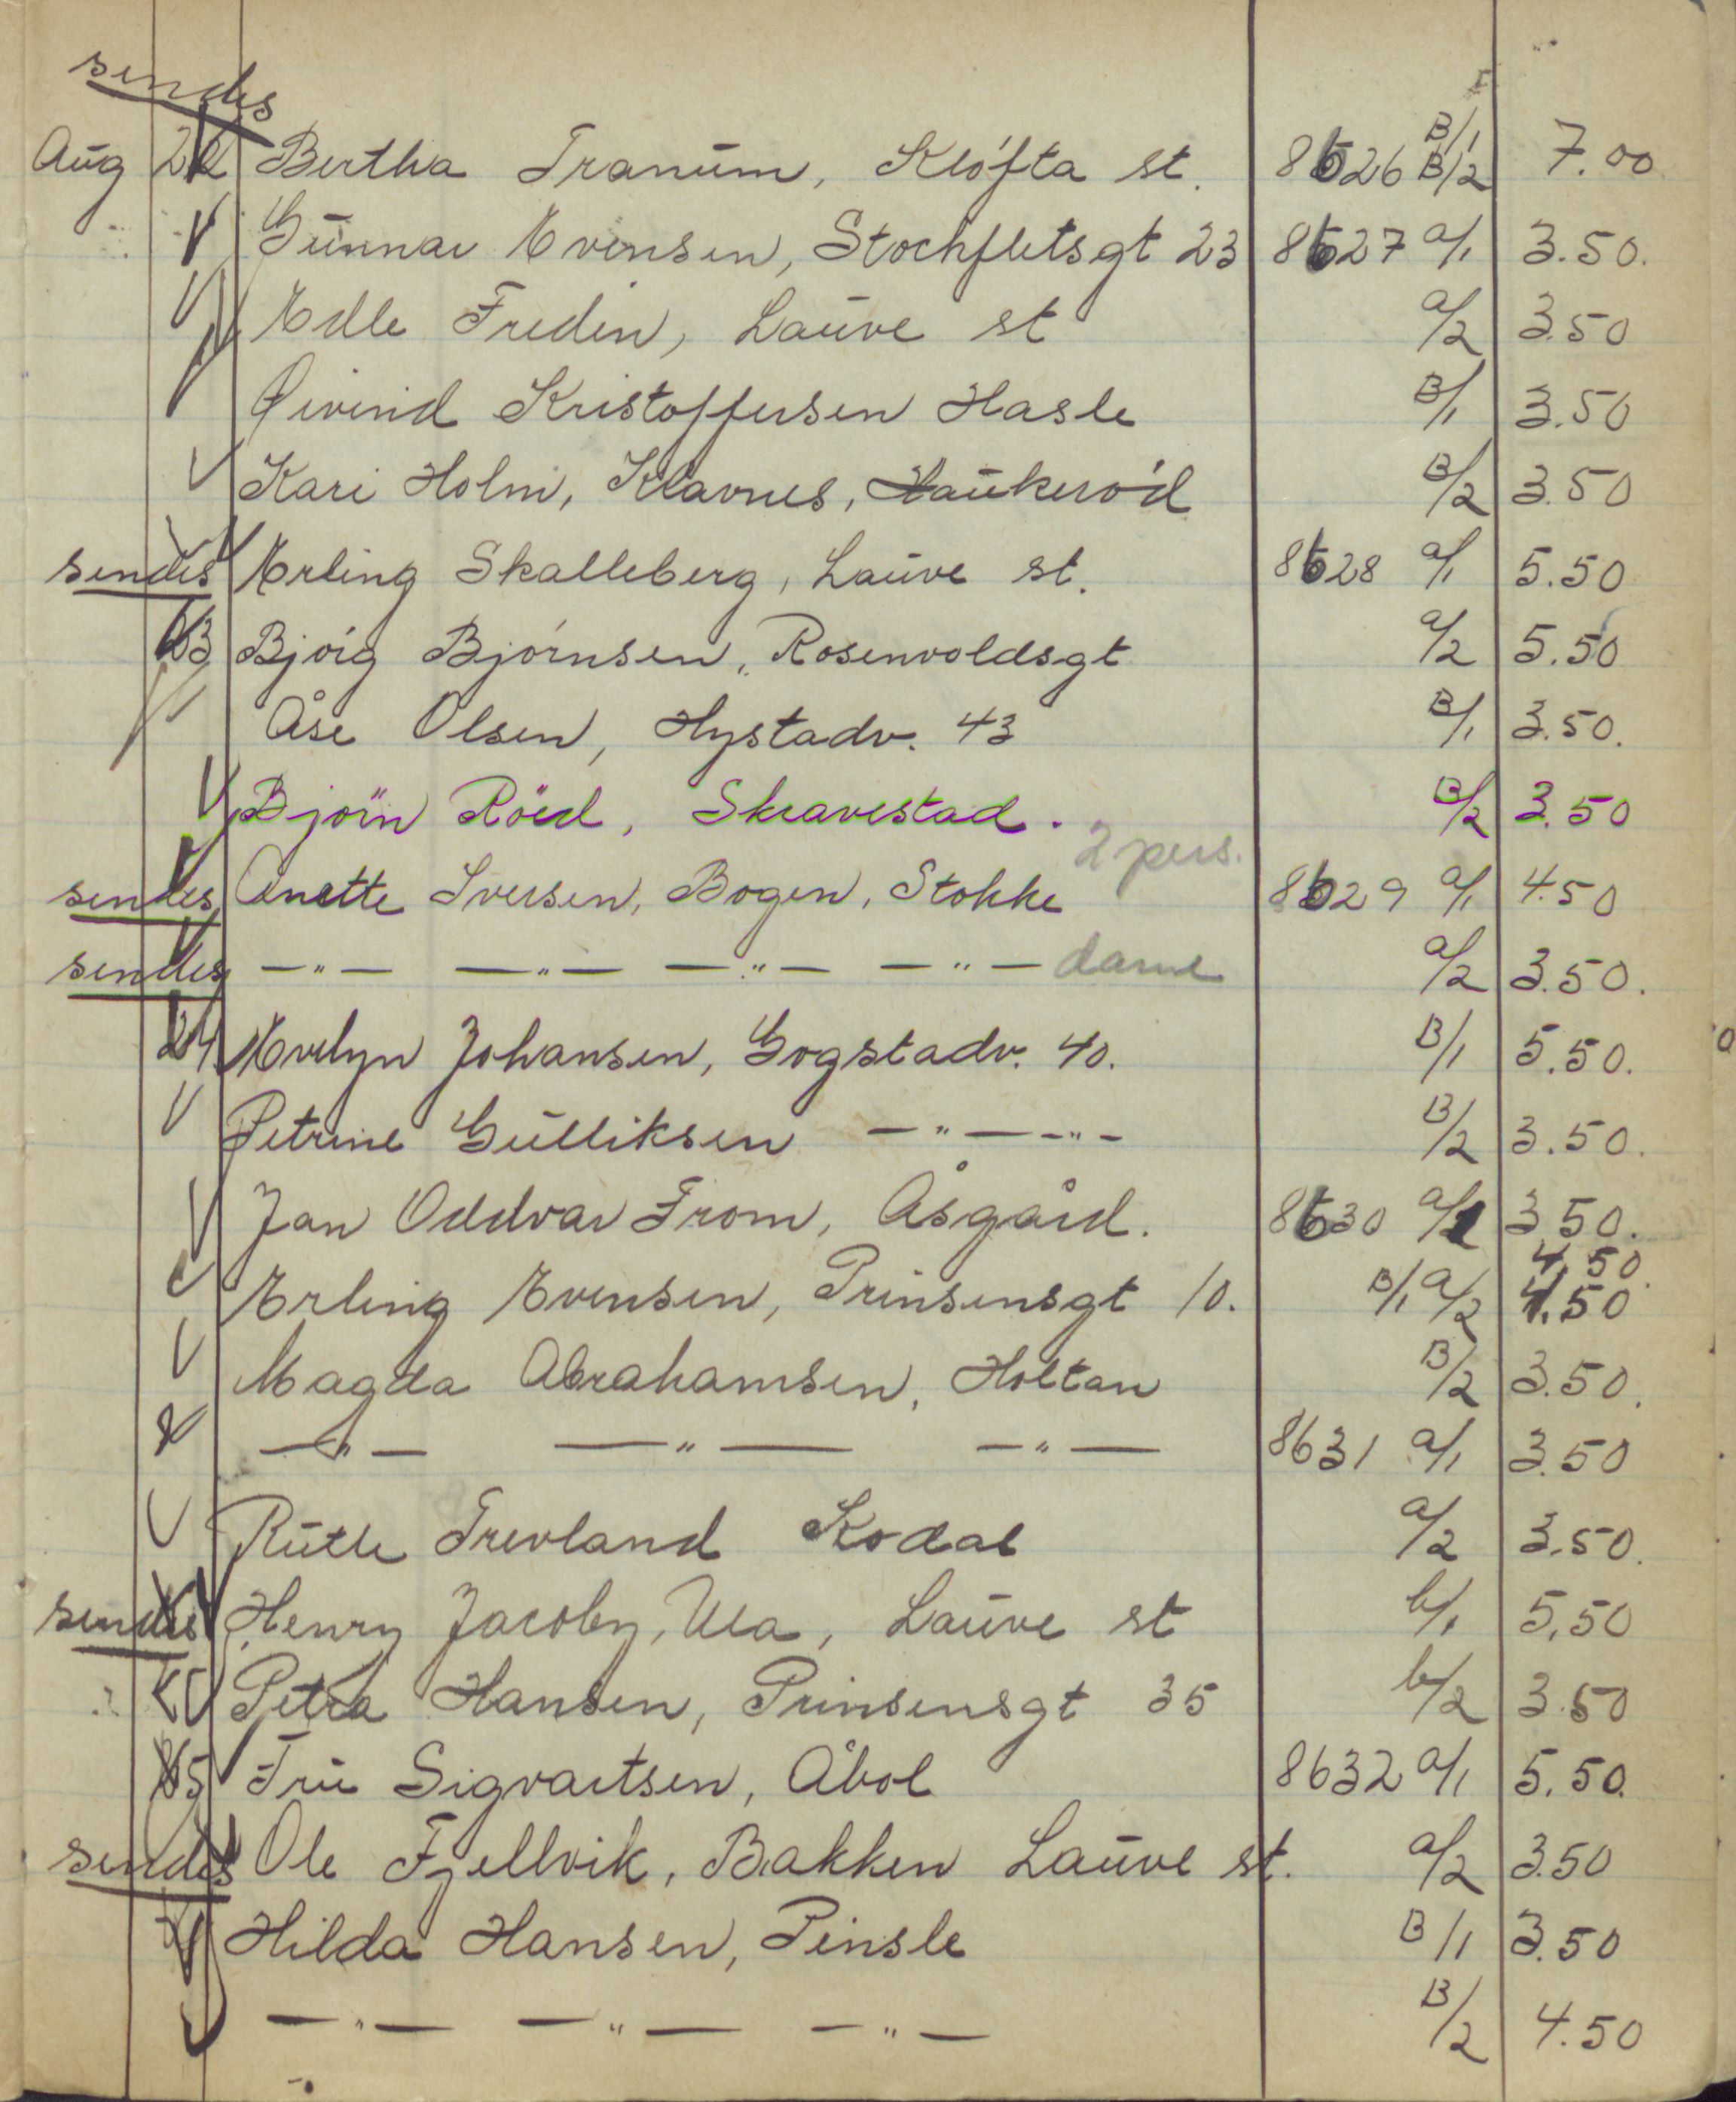 sendes
Aug 22 Bertha Tranum, Kløfta st. 8626 B/1 B/2 7.00
Gunnar Evensen, Stochfletsgt 23 8627 a/1 3.50.
Edle Fredin, Lauve st a/2 3.50
Øivind Kristoffersen Hasle B/1 3.50
Kari Holm, Klavnes, Haukerød B/2 3.50
sendes Erling Skalleberg, Lauve st. 8628 a/1 5.50
23 Bjørg Bjørnsen, Rosenvoldsgt a/2 5.50
Åse Olsen, Hystadv. 43 B/1 3.50.
Bjørn Röed, Skravestad. B/2 3.50
2 pers.
sendes Anette Iversen, Bogen, Stokke 8629 a/1 4.50
sendes —"— —"— —"— —"— dame a/2 3.50.
24 Evelyn Johansen, Gogstadv. 40. B/1 5.50.
Petrine Gulliksen —"—"— B/2 3.50.
Jan Oddvar From, Åsgård. 8630 a/1 3.50.
4.50
Erling Evensen, Prinsensgt 10. B/1 a/2 4.50
Magda Abrahamsen, Holtan B/2 3.50.
—"— —"— —"— 8631 a/1 3.50
Ruth Trevland Kodal a/2 3.50.
sendes Henry Jacoby, Ula, Lauve st b/1 5.50
Petra Hansen, Prinsensgt 35 b/2 3.50
25 Fru Sigvartsen, Åbol 8632 a/1 5.50.
sendes Ole Fjellvik, Bakken Lauve st. a/2 3.50
Hilda Hansen, Pinsle B/1 3.50
—"— —"— —"— B/2 4.50